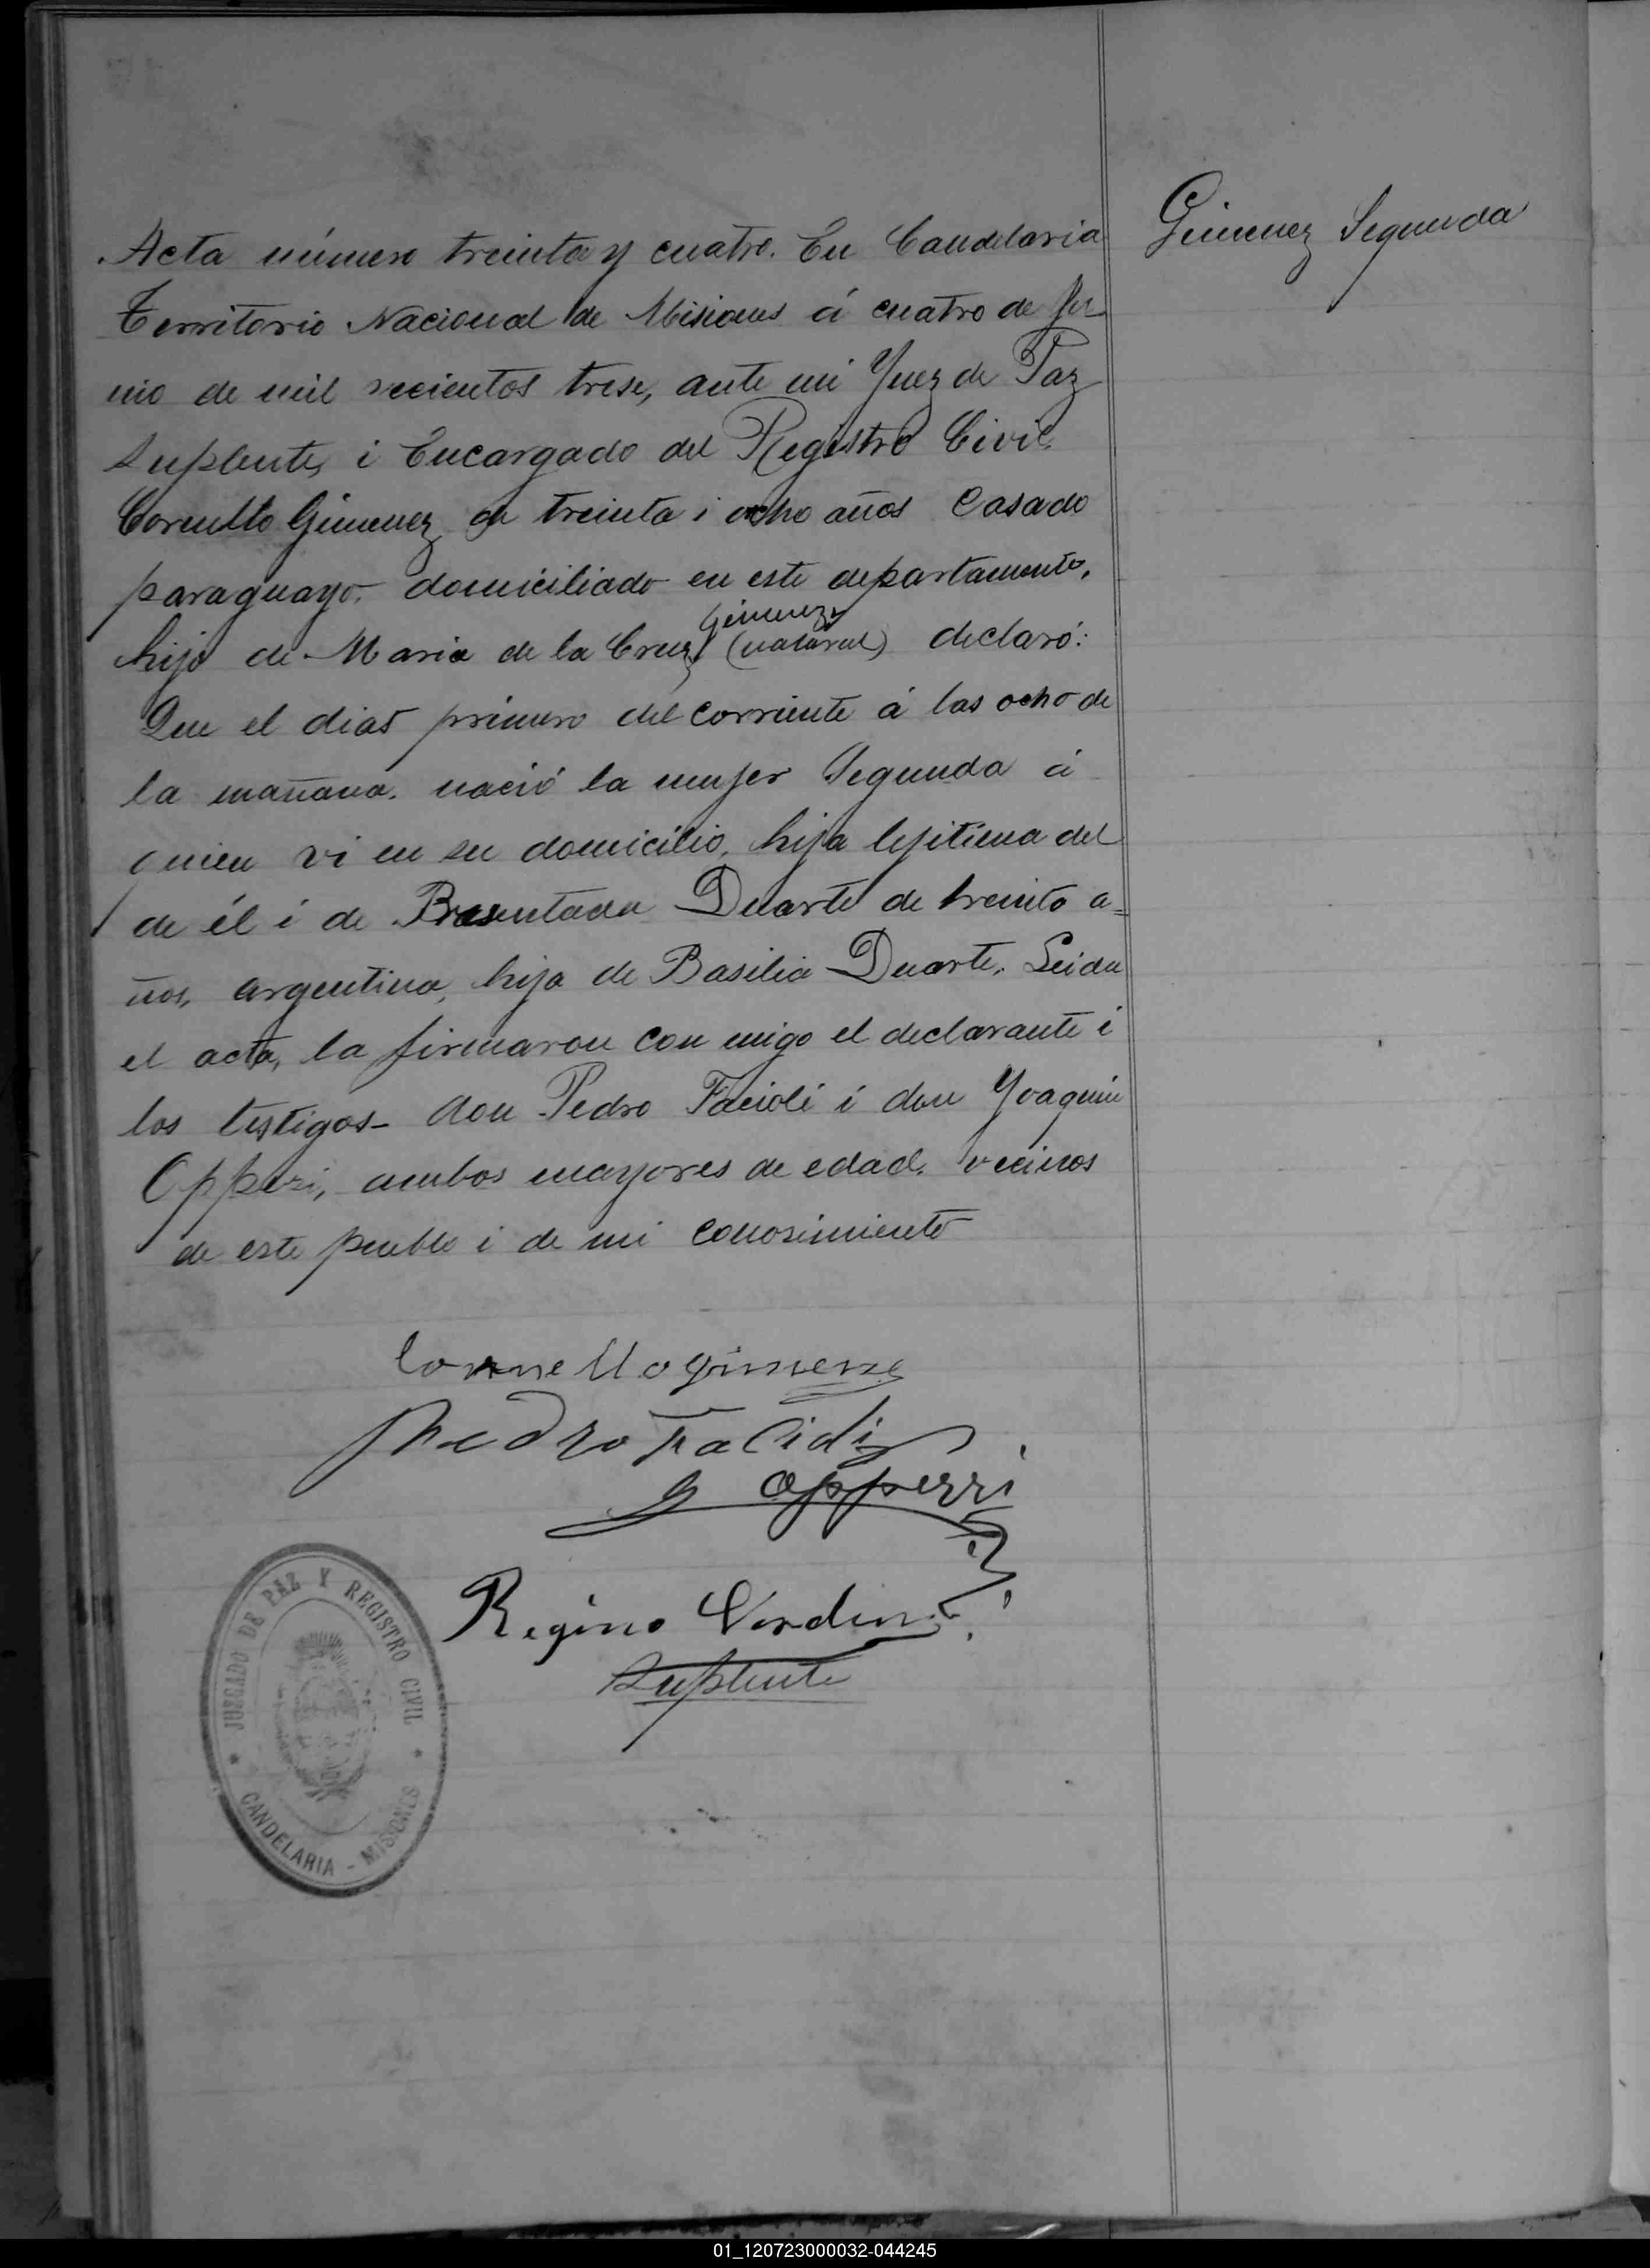 Gimenez Segunda
Acta número treinta y cuatro. En Candelaria
Territorio Nacional de Misiones á cuatro de Ju
nio de mil necientos trese, ante mi Juez de Paz
Suplente, i Encargado del Registro Civil.
Gimenez de treinta i ocho años Casado
paraguayo. domiciliado en este departamento,
Gimenez
hijo de Maria de la Cruz (natural) declaró:
Que el dias primero del corriente á las ocho de
la mañana. nació la mujer Segunda á
quien vi en su domicilio, hija lejitima del
de él i de Duarte de treinta a=
ños, argentina, hija de Basilia Duarte. Leida
el acta, la firmaron con migo el declarante i
los testigos- don Pedro Facioli i don Yoaquin
Opperi, ambos mayores de edad. vecinos
de este pueblo i de mi conosimiento
gimenez
Pedro
Opperri
Regino
Suplente
JUZGADO DE PAZ Y REGISTRO CIVIL
* CANDELARIA - MISIONES *
01_120723000032-044245